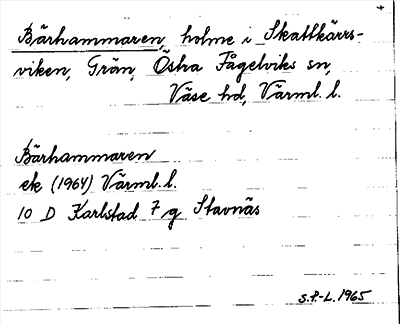 Bärhammaren, holme i Skattkärrs-
viken, Grän, Östra Fågelviks sn,
Väse hd, Värml. l.
Bärhammaren
ek (1964) Värml. l.
10 D Karlstad 7 g Stavnäs
S.P.-L. 1965